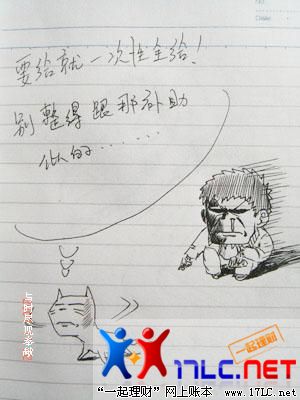 要给就一次性全给!
别整得跟那补助
似的......
一起理财
17LC.net
"一起理财"网上账本 www.17LC.net